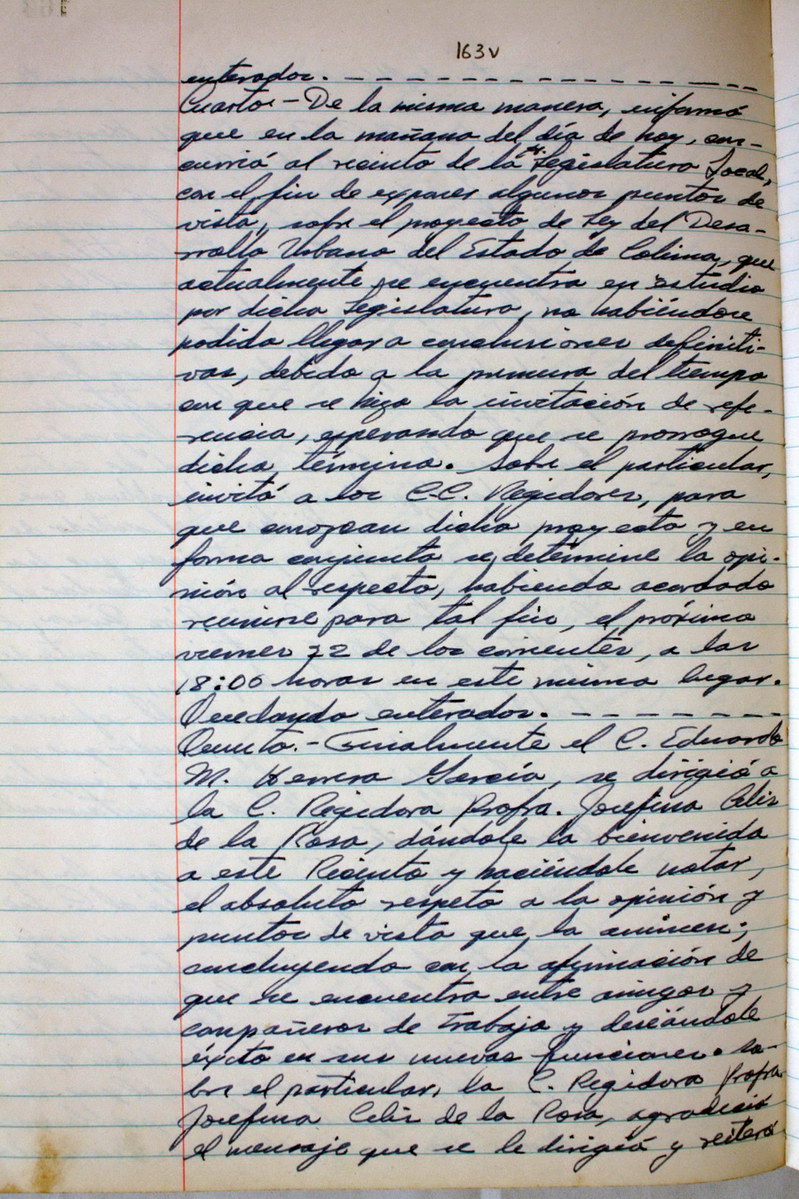 163v
enterados. - - - - - - - - - - - - - -
Cuarto.- De la misma manera, informó
que en la mañana del día de hoy, con-
currió al recinto de la H. Legislatura Local,
con el fin de exponer algunos puntos de
vista, sobre el proyecto de Ley del Desa-
rrollo Urbano del Estado de Colima, que
actualmente se encuentra en estudio
por dicha Legislatura, no habiéndose
podido llegar a conclusiones definiti-
vas, debido a la premura del tiempo
con que se hizo la invitación de refe-
rencia, esperando que se prorrogue
dicho término. Sobre el particular,
invitó a los C.C. Regidores, para
que conozcan dicho proyecto y en
forma conjunta se determine la opi-
nión al respecto, habiendo acordado
reunirse para tal fin, el próximo
viernes 22 de los corrientes, a las
18:00 horas en este mismo lugar.
Quedando enterados. - - - - - - - -
Quinto.- Finalmente el C. Eduardo
M. Herrera García, se dirigió a
la C. Regidora Profra. Josefina Celis
de la Rosa, dándole la bienvenida
a este Recinto y haciéndole notar,
el absoluto respeto a la opinión y
puntos de vista que la animen;
concluyendo con la afirmación de
que se encuentra entre amigos y
compañeros de trabajo y deseándole
éxito en sus nuevas funciones. So-
bre el particular, la C. Regidora Profra.
Josefina Celis de la Rosa, agradeció
el mensaje que se le dirigió y reiteró